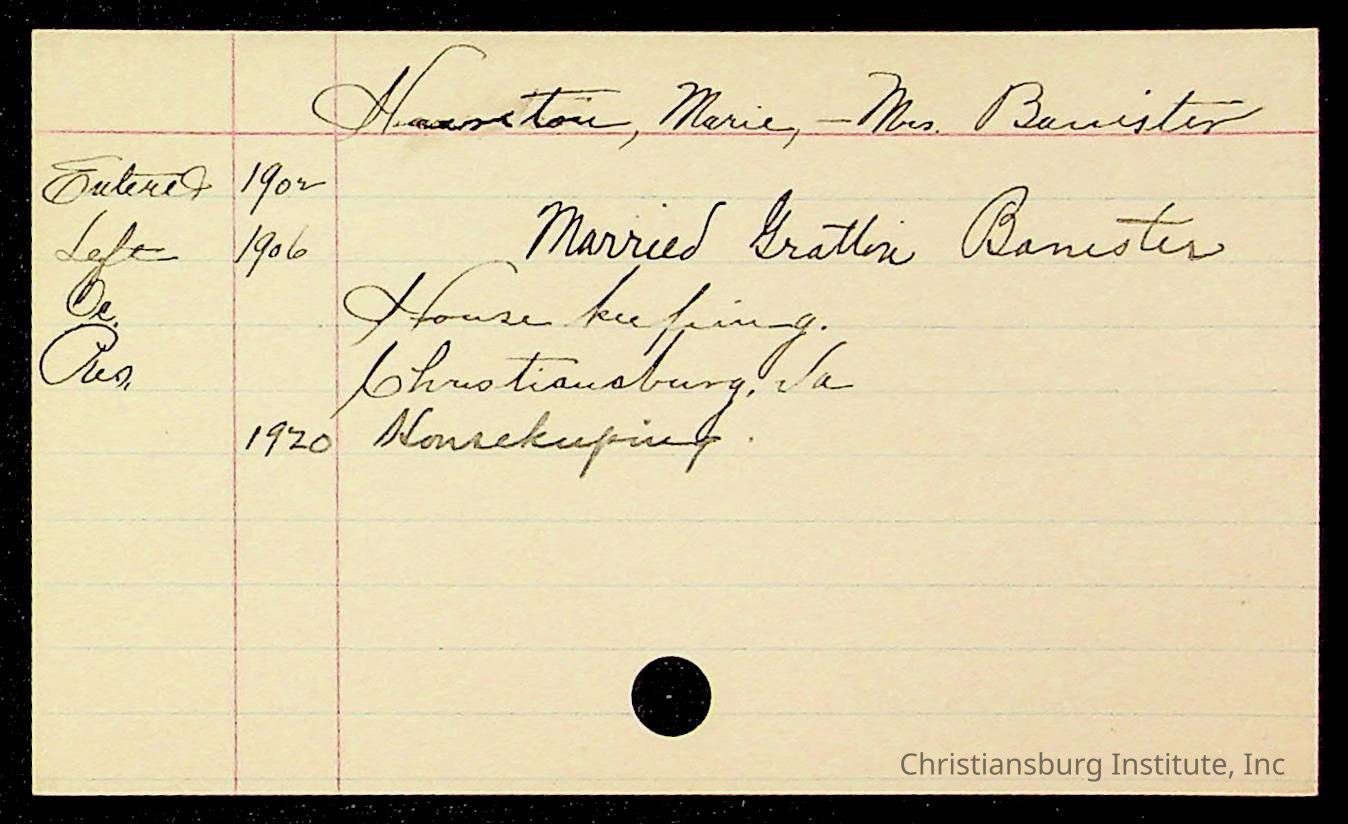 Hairston, Marie, - Mrs. Banister
Entered 1902
Left 1906 Married Grattin Banister
Oc. House keeping.
Res. Christiansburg, Va
1920 Housekeeping.
Christiansburg Institute, Inc